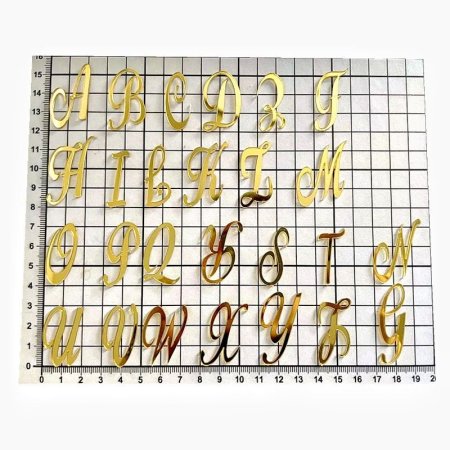 16
15 A B C D J
14
13
12
11 H I K L M
10
9
8
7
6 O P Q S T N
5
4
3
2 U V W X Y G
1
0
0 1 2 3 4 5 6 7 8 9 10 11 12 13 14 15 16 17 18 19